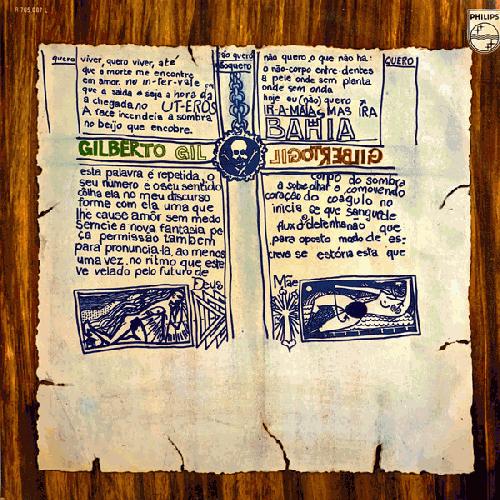 R 765.087 L
PHILIPS
quero
viver, quero viver, até
que a morte me encontre
em amor. no in-fer-vale
que a saída e seja a hora da
a chegada no UT-EROS
A face incendeia a sombra
no beijo que encobre.
não quero
não quero, o que não há:
o não-corpo entre-dentes
a pele onde sem planta
onde sem onda
hoje ou (não) quero
IR-A-MAIS MAS IRA
BAHIA
QUERO
GILBERTO GIL
GILBERTO GIL
esta palavra é repetida, o
seu número e o seu sentido
olha ela no meu discurso
forme com ela uma que
lhe cause amôr sem medo
Semeie a nova fantasia pe
ça permissão também
para pronunciá-la, ao menos
uma vez, no ritmo que este
ve velado pelo futuro de
Deus
corpo da sombra
a sobre olhar e comovendo
coração do coagulo no
inicia se que sangue le
fluxo detenha não que
para oposto modo de es:
creva se estória esta que
Mãe